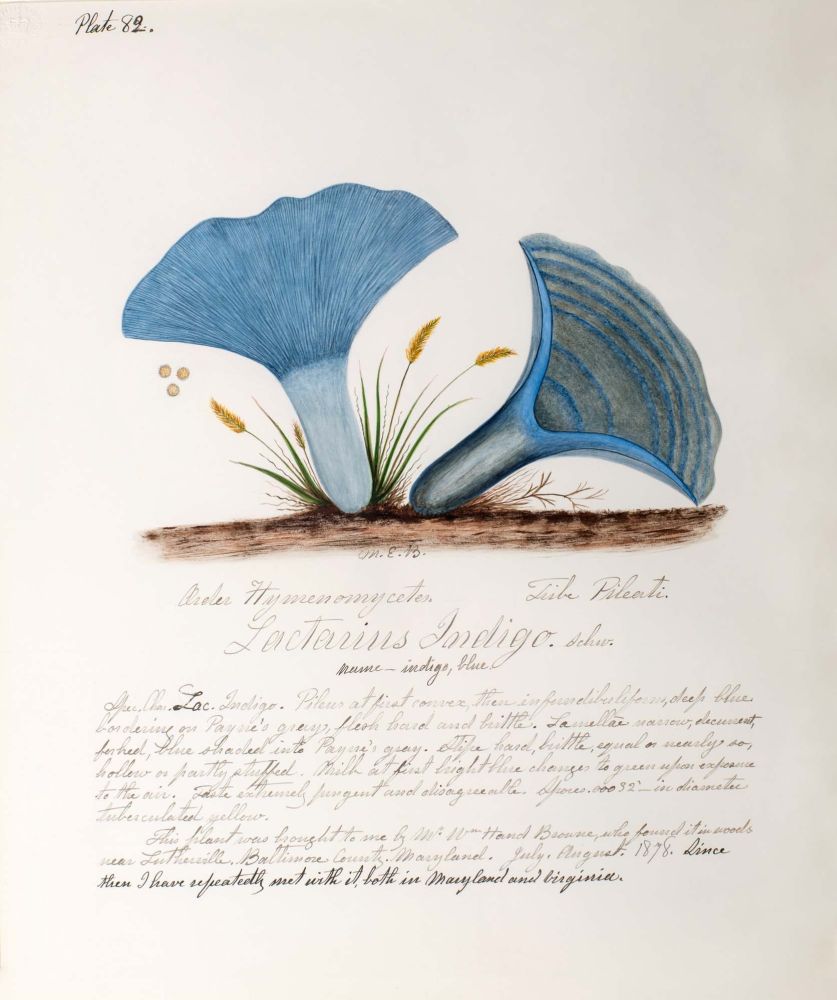 Plate 82.
M.E.B.
Order Hymenomycetes. Tribe Pileati.
Lactarius Indigo. Schw.
name – indigo, blue.
Spec. Char. Lac. Indigo. Pileus at first convex, then infundibuliform, deep blue
bordering on Payne's gray, flesh hard and brittle. Lamellae narrow, decurrent,
forked, blue shaded into Payne's gray. Stipe hard, brittle, equal or nearly so,
hollow or partly stuffed. Milk at first bright blue changes to green upon exposure
to the air. Taste extremely pungent and disagreeable. Spores .00032" in diameter
tuberculated, yellow.
This plant was brought to me by Mr. Wm Hand Browne, who found it in woods
near Lutherville. Baltimore County. Maryland. July. August. 1878. Since
then I have repeatedly met with it, both in Maryland and Virginia.